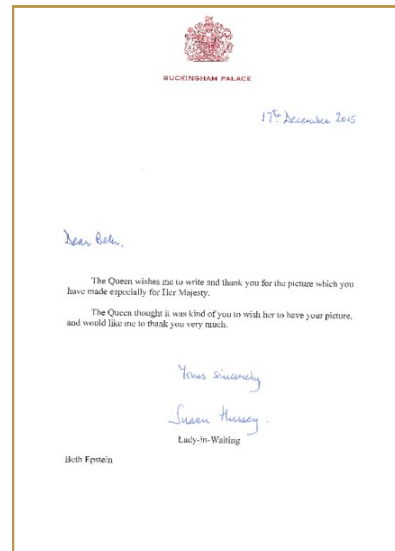 BUCKINGHAM PALACE
17th December 2015
Dear Beth,
The Queen wishes me to write and thank you for the picture which you
have made especially for Her Majesty.
The Queen thought it was kind of you to wish her to have your picture,
and would like me to thank you very much.
Yours sincerely
Susan Hussey.
Lady-in-Waiting
Beth Epstein